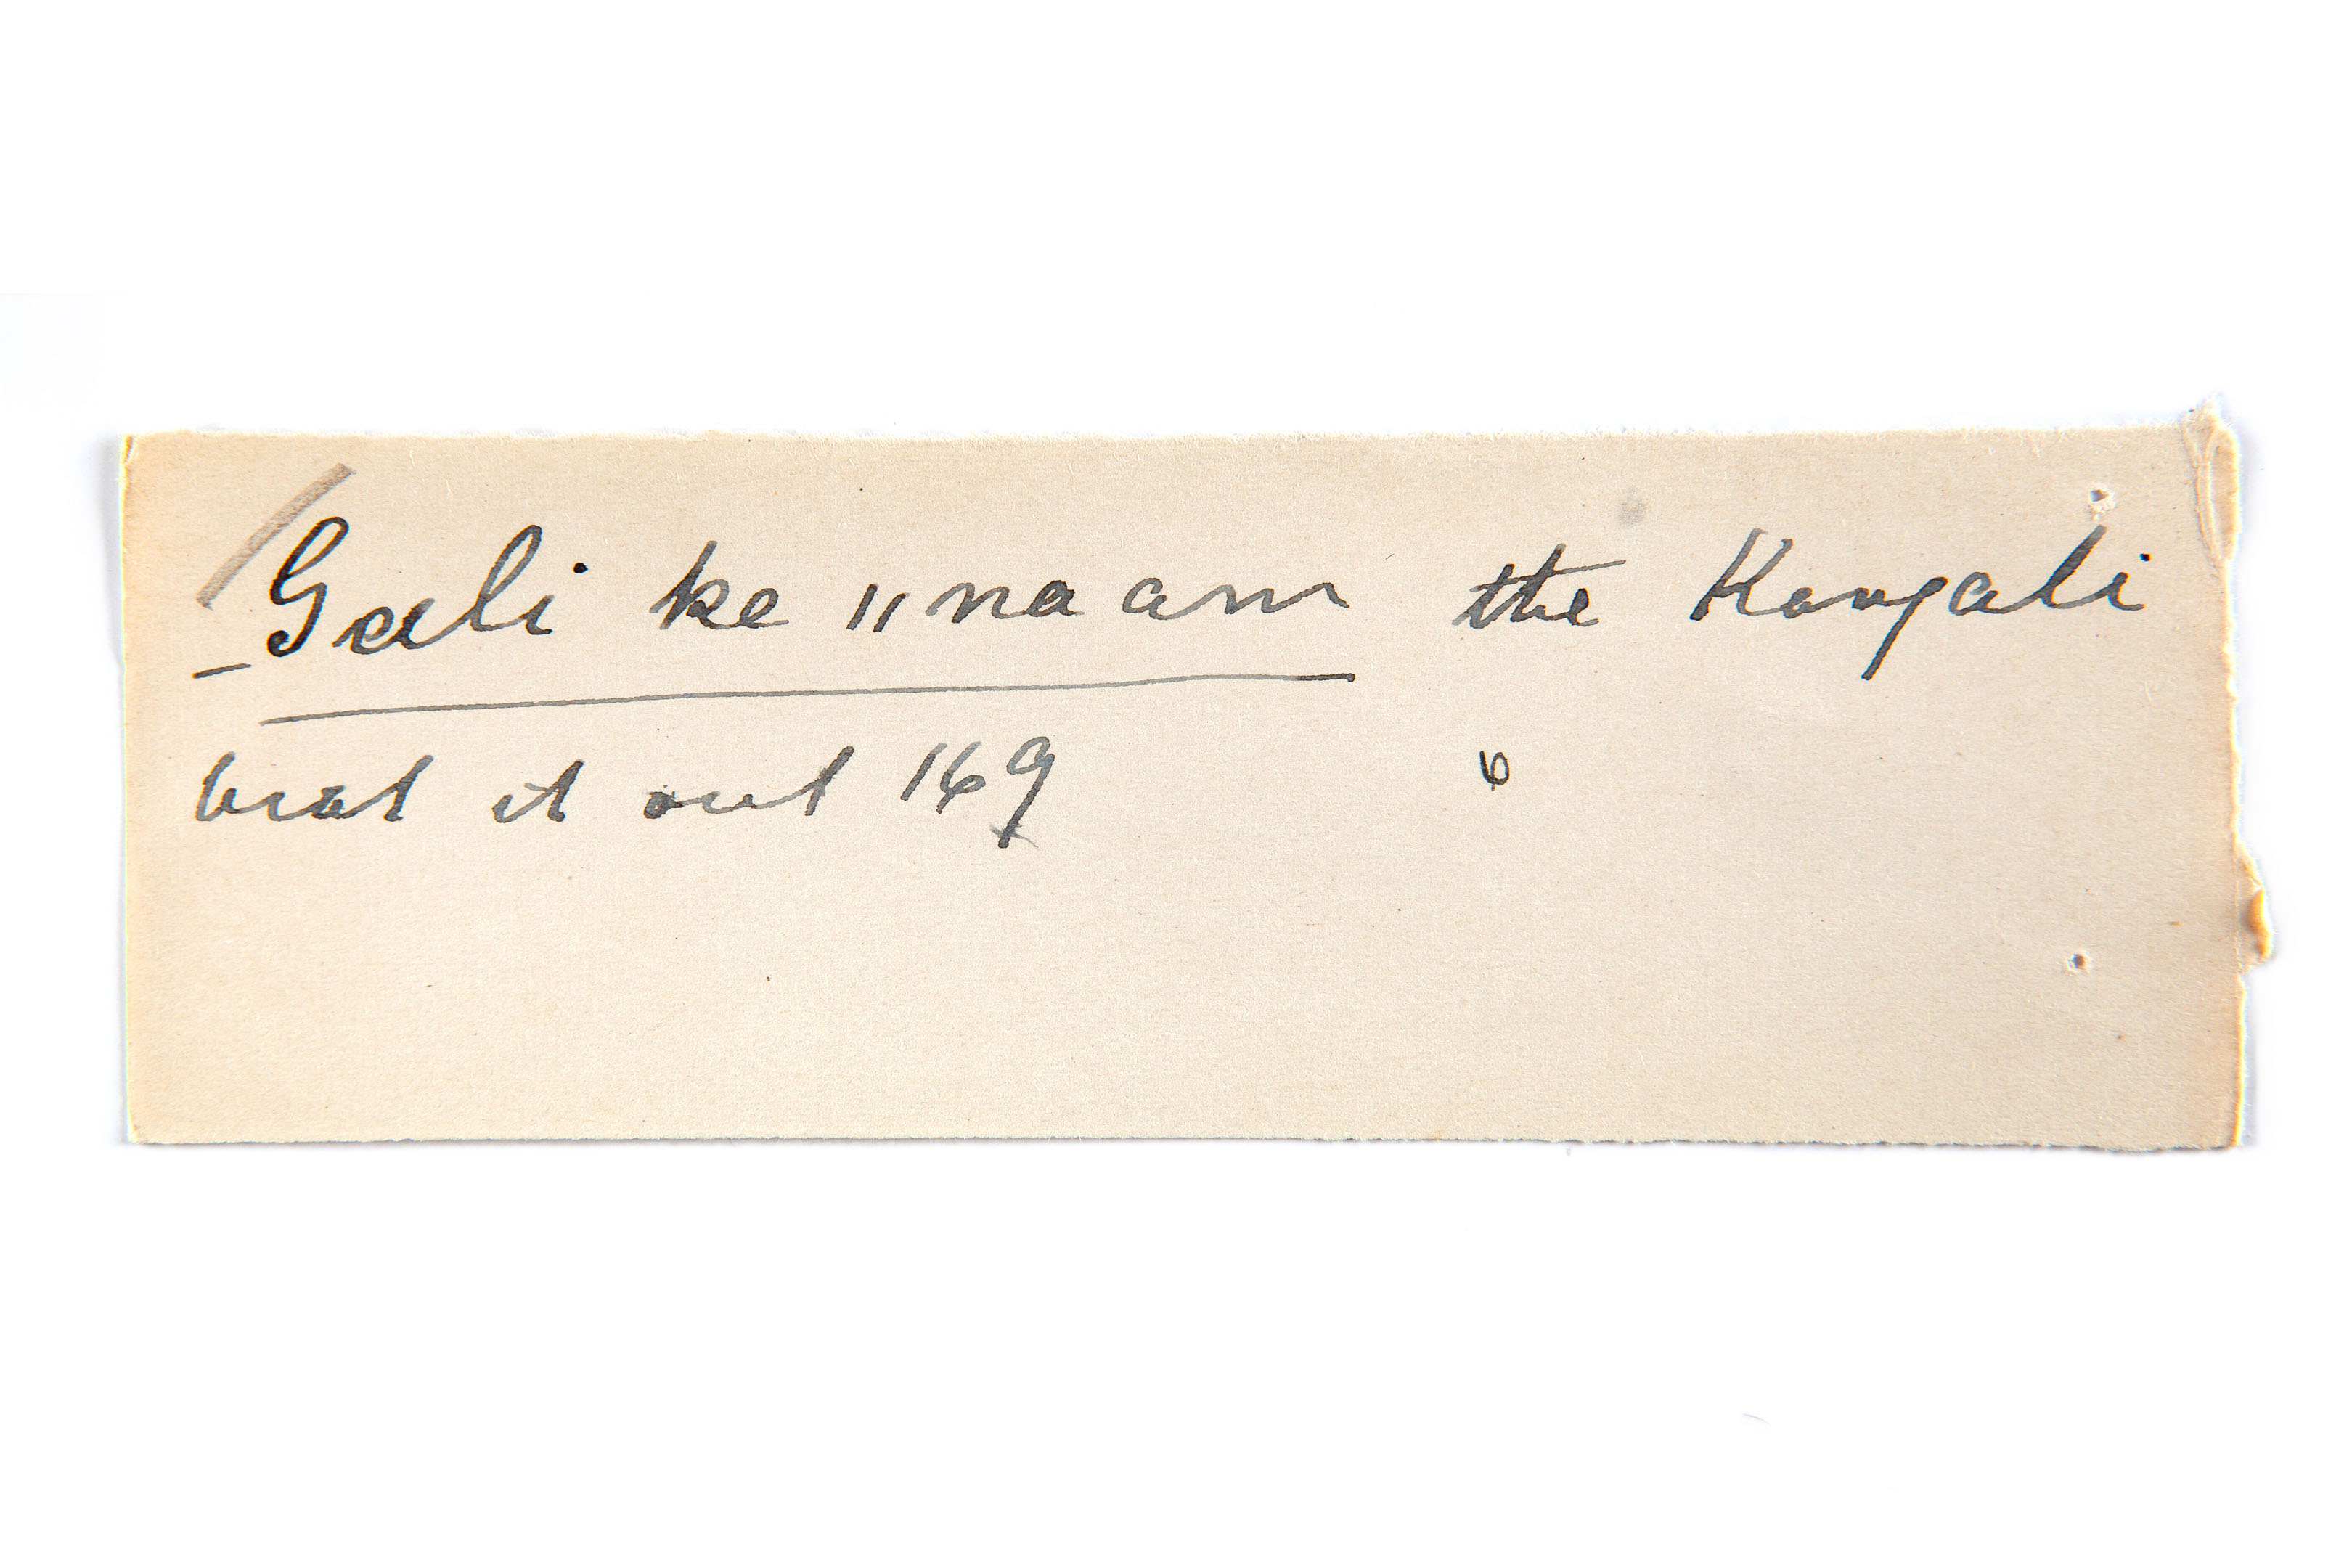 /Gali ke ‖na am the Kangali
beat it out 169 6